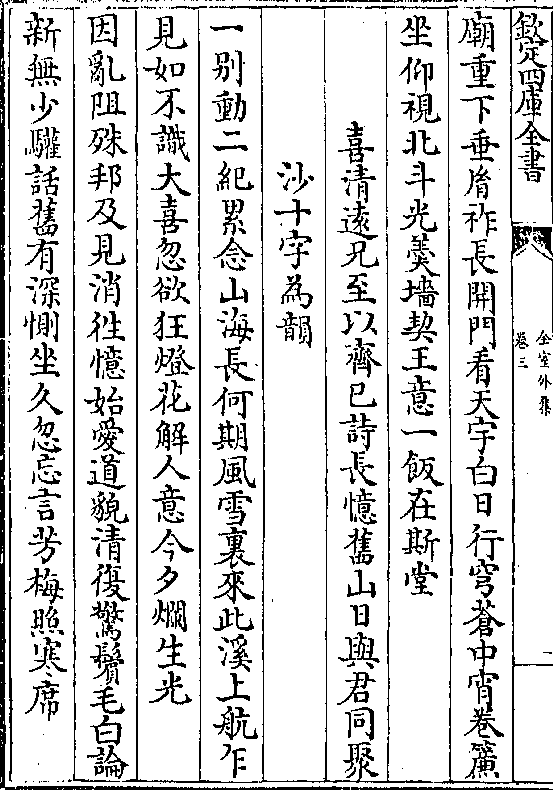 欽定四庫全書
全室外集
卷三
廟重下垂脩祚長開門看天宇白日行穹蒼中宵卷簾
坐仰視北斗光羮墻契王意一飯在斯堂
喜清遠兄至以齊已詩長憶舊山日與君同聚
沙十字為韻
一别動二紀累念山海長何期風雪裏來此溪上航乍
見如不識大喜忽欲狂燈花解人意今夕爛生光
因亂阻殊邦及見消徃憶始愛道貌清復驚鬢毛白論
新無少驩話舊有深惻坐久忽忘言芳梅照寒席